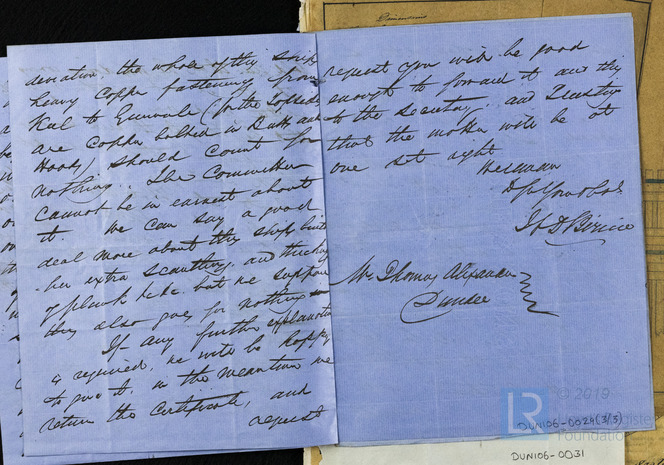 deviation the whole of this ship
heavy copper fastening from
Keel to Gunwale (for the topsides
are copper bolted in Butt and
Hoods) should count for
nothing. The Committee
cannot be in earnest about
it. We can say a good
deal more about this ships built
her extra scantling, and thickness
of plank &c &c. but we suppose
they also goes for nothing
If any further explanation
is required, we will be happy
to give it, in the meantime we
return the Certificate, and
request
request you will be good
enough to forward it and this
to the Secretary, and I trust
that the matter will be at
one set right
We remain
Dr Sir Your Obt
Mr Thomas Alexander
Dundee
© 2019
LR
Register
Foundation
DUN106-0029(3/5)
DUN106-0031